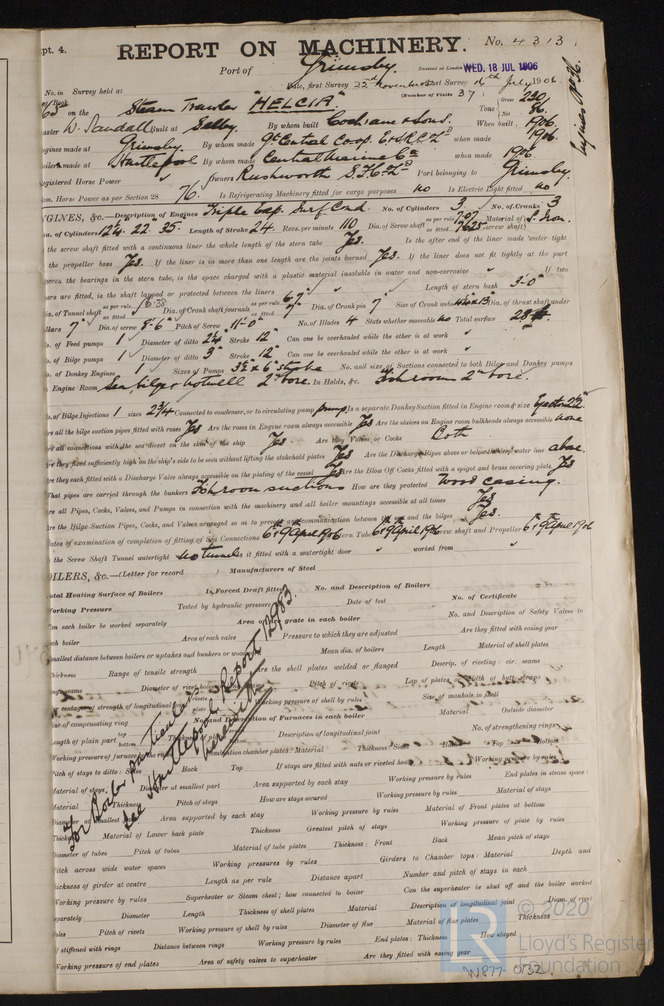 pt. 4.
REPORT ON MACHINERY. No. 4313
Port of Grimsby
Received at London WED. 18 JUL 1906
No. in Survey held at Date, first Survey 22nd November Last Survey 14th July 1906
(Number of Visits 37)
on the Steam Trawler HELCIA Tons Gross 230 Net 86
W. Sandall Built at Selby. By whom built Cochrane & Sons. When built 1906.
ngines made at Grimsby. By whom made Gt Central Coop. E. & S. R. Co. Ld when made 1906.
made at Hartlepool By whom made Central Marine Co when made 1906.
egistered Horse Power Owners Rushworth S. F. Co. Ld Port belonging to Grimsby.
om. Horse Power as per Section 28 76. Is Refrigerating Machinery fitted for cargo purposes no Is Electric Light fitted no
NGINES, &c.—Description of Engines Triple Exp. Surf Cond. No. of Cylinders 3 No. of Cranks 3
a. of Cylinders 12¼. 22. 35. Length of Stroke 24. Revs. per minute 110 Dia. of Screw shaft as per rule 7.07 as fitted 7.625 Material of screw shaft S. Iron.
the screw shaft fitted with a continuous liner the whole length of the stern tube Yes. Is the after end of the liner made water tight
the propeller boss Yes. If the liner is in more than one length are the joints burned Yes. If the liner does not fit tightly at the part
ween the bearings in the stern tube, is the space charged with a plastic material insoluble in water and non-corrosive " If two
ers are fitted, is the shaft lapped or protected between the liners " Length of stern bush 3'-0"
ia. of Tunnel shaft as per rule 6.38 as fitted Dia. of Crank shaft journals as per rule 6.7 as fitted 7" Dia. of Crank pin 7" Size of Crank webs Dia. of thrust shaft under
llars 7" Dia. of screw 8'-6" Pitch of Screw 11'-0" No. of Blades 4 State whether moveable no Total surface 28 ft.
o. of Feed pumps 1 Diameter of ditto 2¼ Stroke 12" Can one be overhauled while the other is at work "
o. of Bilge pumps 1 Diameter of ditto 3" Stroke 12" Can one be overhauled while the other is at work "
o. of Donkey Engines 1 Sizes of Pumps 3½ x 6" stroke No. and size of Suctions connected to both Bilge and Donkey pumps
Engine Room Sea, bilge & hotwell 2" bore. In Holds, &c. Fishroom 2" bore.
o. of Bilge Injections 1 sizes 2¾ Connected to condenser, or to circulating pump pump. Is a separate Donkey Suction fitted in Engine room & size Ejector
re all the bilge suction pipes fitted with roses Yes Are the roses in Engine room always accessible Yes Are the sluices on Engine room bulkheads always accessible none
re all connections with the sea direct on the skin of the ship Yes. Are they Valves or Cocks Both
re they fixed sufficiently high on the ship's side to be seen without lifting the stokehold plates Yes Are the Discharge Pipes above or below the deep water line above.
re they each fitted with a Discharge Valve always accessible on the plating of the vessel Yes Are the Blow Off Cocks fitted with a spigot and brass covering plate Yes
hat pipes are carried through the bunkers Fishroom suctions How are they protected Wood casing.
re all Pipes, Cocks, Valves, and Pumps in connection with the machinery and all boiler mountings accessible at all times Yes
re the Bilge Suction Pipes, Cocks, and Valves arranged so as to prevent any communication between the sea and the bilges Yes.
ates of examination of completion of fitting of Sea Connections 6th & 9th April 1906 Stern Tube 6th & 9th April 1906 Screw shaft and Propeller 6th & 9th April 1906
the Screw Shaft Tunnel watertight no tunnel Is it fitted with a watertight door " worked from "
OILERS, &c.—(Letter for record ) Manufacturers of Steel
otal Heating Surface of Boilers Is Forced Draft fitted No. and Description of Boilers
orking Pressure Tested by hydraulic pressure Date of test No. of Certificate
an each boiler be worked separately Area of grate in each boiler No. and Description of Safety Valves to
ach boiler Area of each valve Pressure to which they are adjusted Are they fitted with easing gear
mallest distance between boilers or uptakes and bunkers or wood Mean dia. of boilers Length Material of shell plates
hickness Range of tensile strength Are the shell plates welded or flanged Descrip. of riveting: cir. seams
Diameter of rivet holes Pitch of rivets Lap of plates or width of butt straps
percentages of strength of longitudinal joint rivets plate Working pressure of shell by rules Size of manhole in shell
ize of compensating ring No. and Description of Furnaces in each boiler Material Outside diameter
ength of plain part top bottom Description of longitudinal joint No. of strengthening rings
Working pressure of furnace by the rules Combustion chamber plates: Material Thickness: Sides Back Top Bottom
Pitch of stays to ditto: Sides Back Top If stays are fitted with nuts or riveted heads Working pressure by rules
Material of stays Diameter at smallest part Area supported by each stay Working pressure by rules End plates in steam space:
Material Thickness Pitch of stays How are stays secured Working pressure by rules Material of stays
Diameter at smallest Area supported by each stay Working pressure by rules Material of Front plates at bottom
Thickness Material of Lower back plate Thickness Greatest pitch of stays Working pressure of plate by rules
Diameter of tubes Pitch of tubes Material of tube plates Thickness: Front Back Mean pitch of stays
Pitch across wide water spaces Working pressures by rules Girders to Chamber tops: Material Depth and
hickness of girder at centre Length as per rule Distance apart Number and pitch of stays in each
Working pressure by rules Superheater or Steam chest; how connected to boiler Can the superheater be shut off and the boiler worked
eparately Diameter Length Thickness of shell plates Material Description of longitudinal joint Diam. of rivet
oles Pitch of rivets Working pressure of shell by rules Diameter of flue Material of flue plates Thickness
f stiffened with rings Distance between rings Working pressure by rules End plates: Thickness How stayed
Working pressure of end plates Area of safety valves to superheater Are they fitted with easing gear
For Boiler particulars
see Hartlepool Report 12983
herewith
© 2020
Lloyd's Register
Foundation
W877-0132